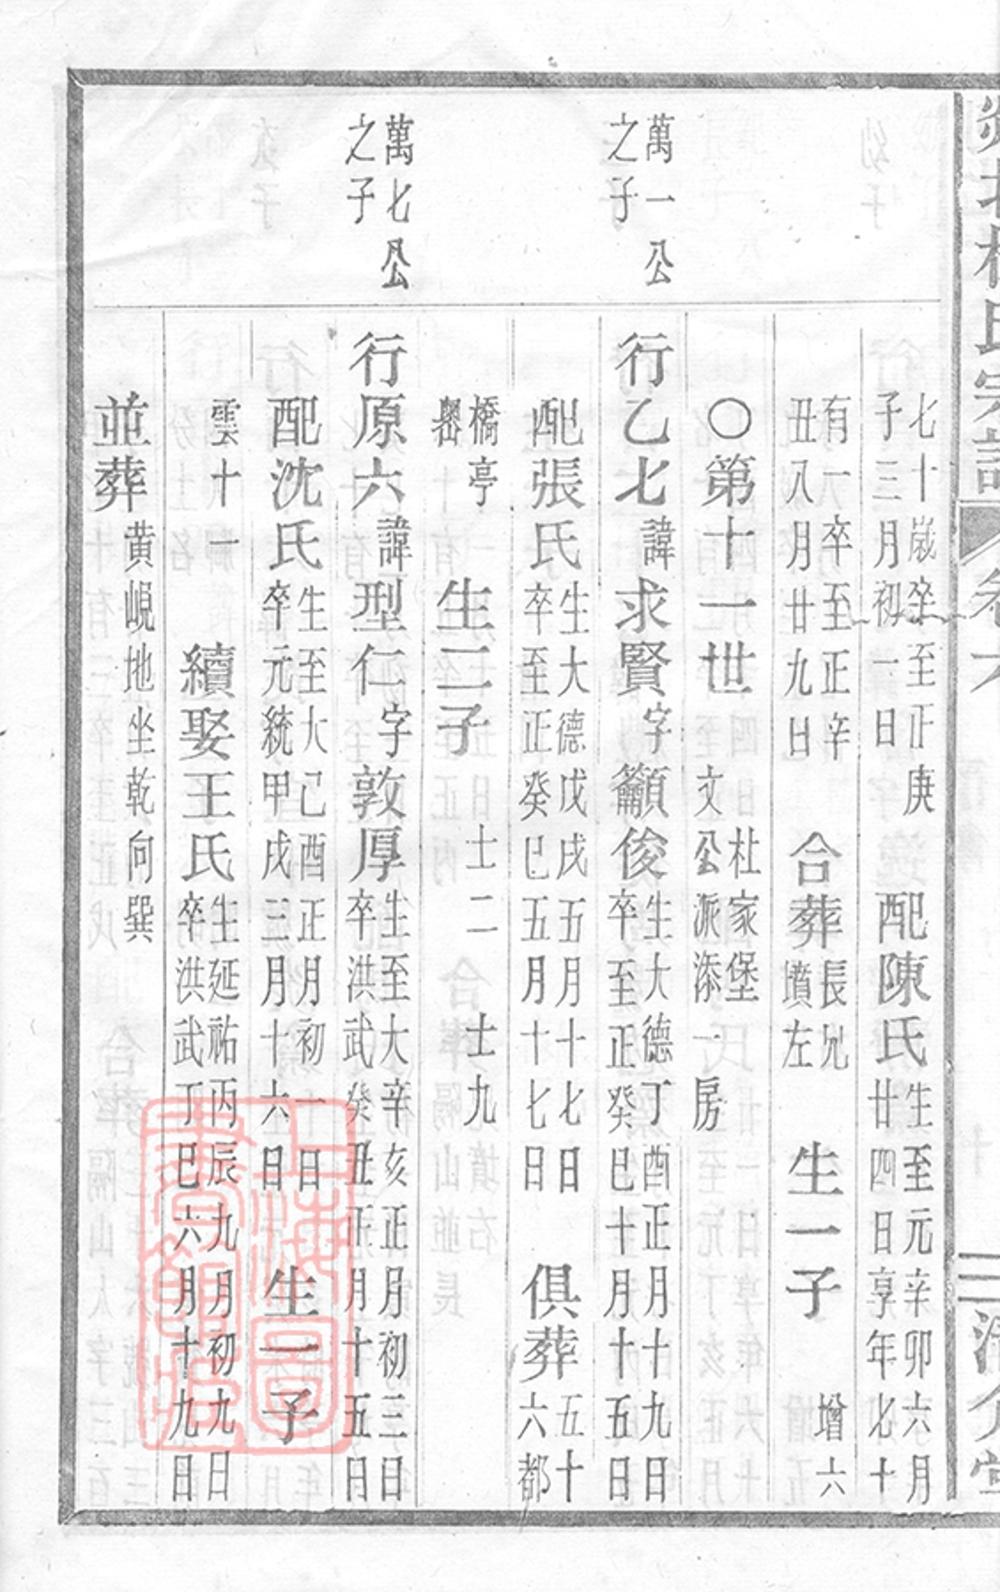 七十歲卒至正庚
子三月初一日
配陳氏
生至元辛卯六月
廿四日享年七十
有一卒至正辛
丑八月廿九日
合葬
長兄
墳左
生一子
增六
○第十一世
杜家堡
文公派添一房
萬一公
之子
行乙七
諱
求賢
字
籲俊
生大德丁酉正月十九日
卒至正癸巳十月十五日
配張氏
生大德戊戌五月十七日
卒至正癸巳五月十七日
俱葬
五十
六都
橋亭
嶴
生二子
士二
士九
萬七公
之子
行原六
諱
型仁
字
敦厚
生至大辛亥正月初三日
卒洪武癸丑正月十五日
配沈氏
生至大己酉正月初一日
卒元統甲戌三月十六日
生一子
雲十一
續娶王氏
生延祐丙辰九月初九日
卒洪武丁巳六月十九日
並葬
黃峴地坐乾向巽
上海圖
書館藏